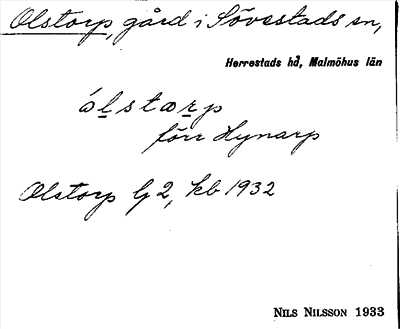 Olstorp, gård i Sövestads sn,
Herrestads hd, Malmöhus län
ólstærp
förr Hynarp
Olstorp lj 2, kb 1932
NILS NILSSON 1933